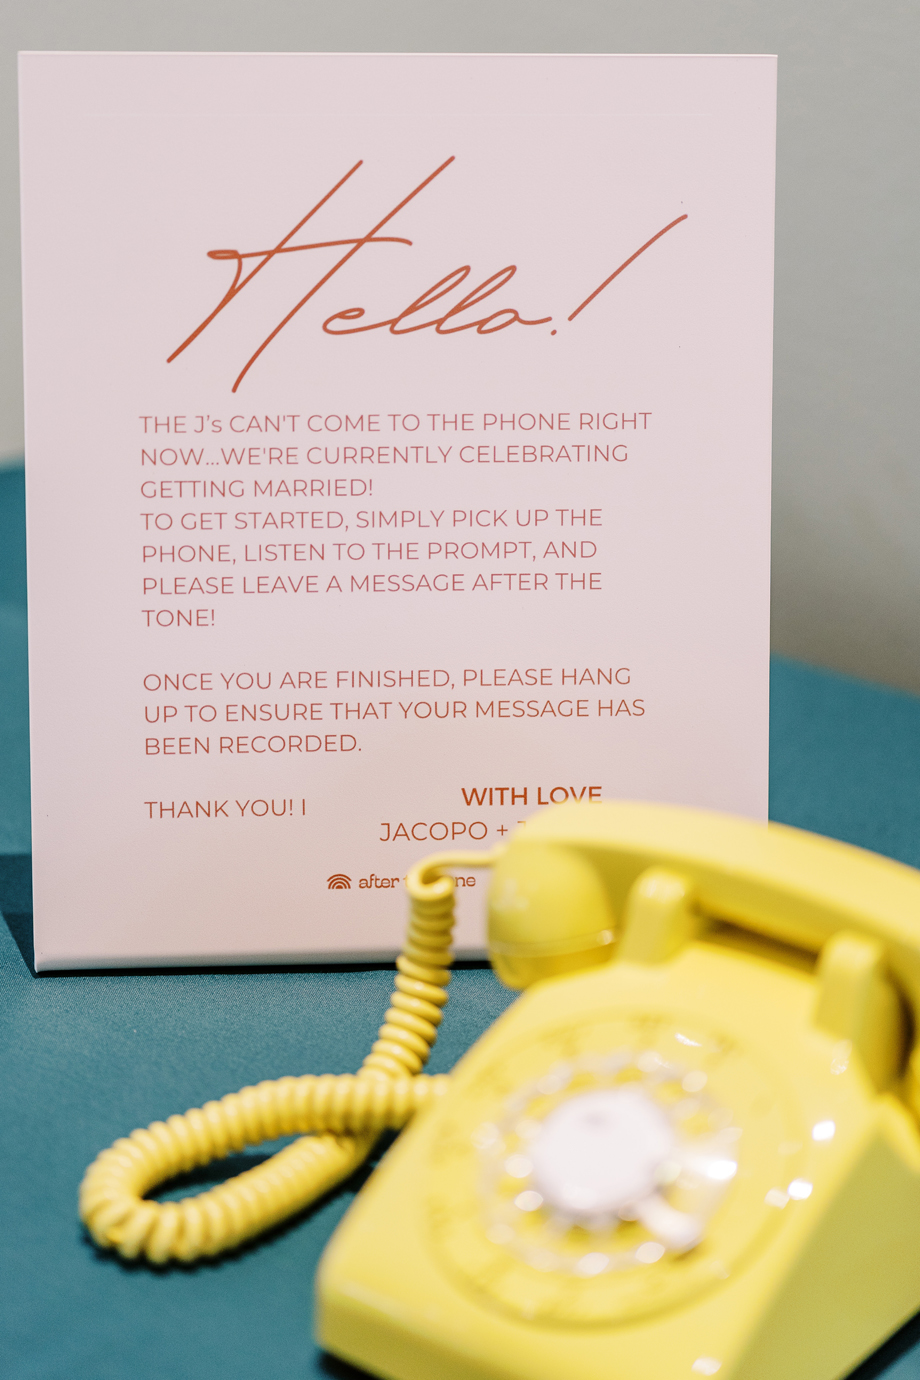 Hello!
THE J's CAN'T COME TO THE PHONE RIGHT
NOW...WE'RE CURRENTLY CELEBRATING
GETTING MARRIED!
TO GET STARTED, SIMPLY PICK UP THE
PHONE, LISTEN TO THE PROMPT, AND
PLEASE LEAVE A MESSAGE AFTER THE
TONE!
ONCE YOU ARE FINISHED, PLEASE HANG
UP TO ENSURE THAT YOUR MESSAGE HAS
BEEN RECORDED.
THANK YOU! I
WITH LOVE
JACOPO +
after